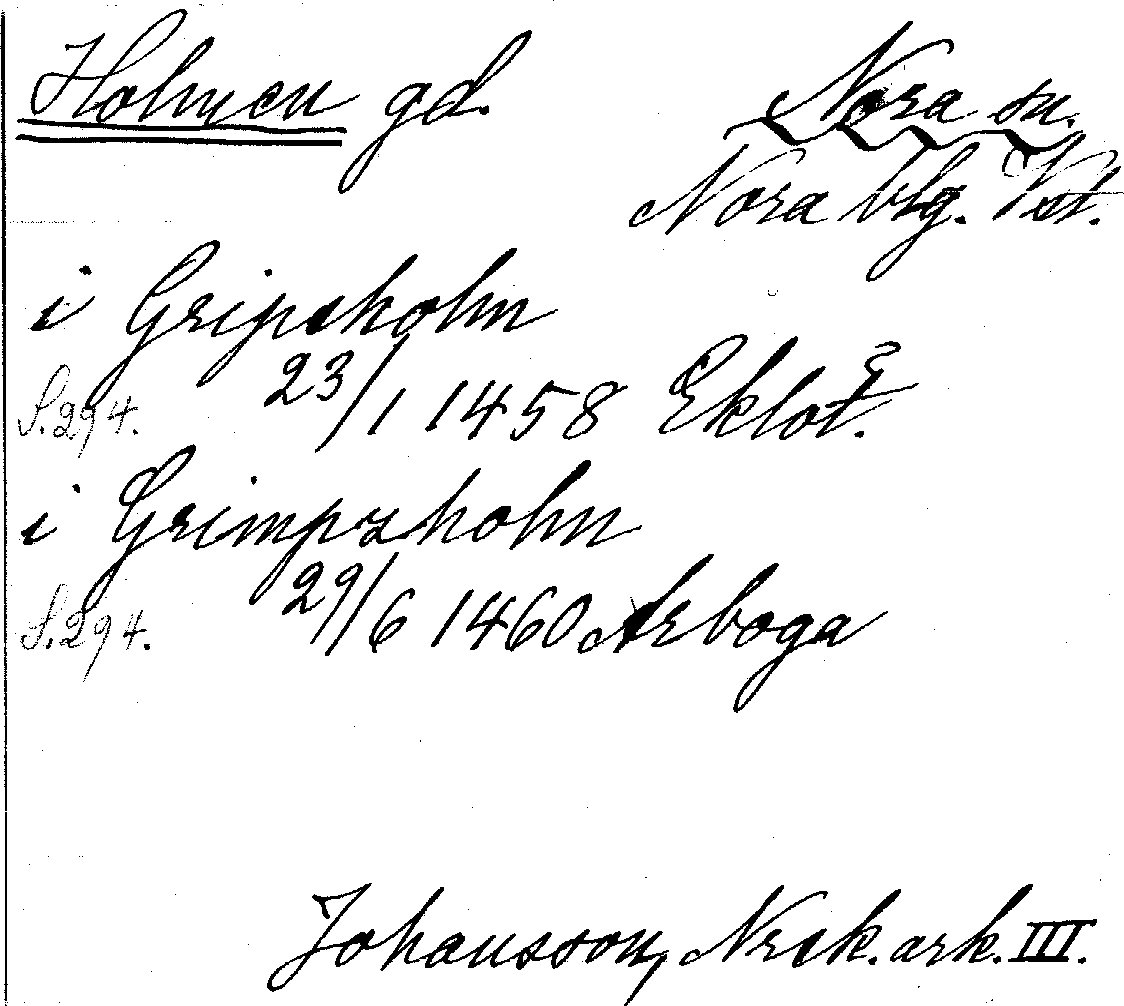 Holmen gd. Nora sn.
Nora blg. Vst.
i Gripsholm
S. 294. 23/1 1458 Eklot.
i Grimpzholm
S. 294. 29/6 1460 Arboga
Johansson, Nrck. ark. III.